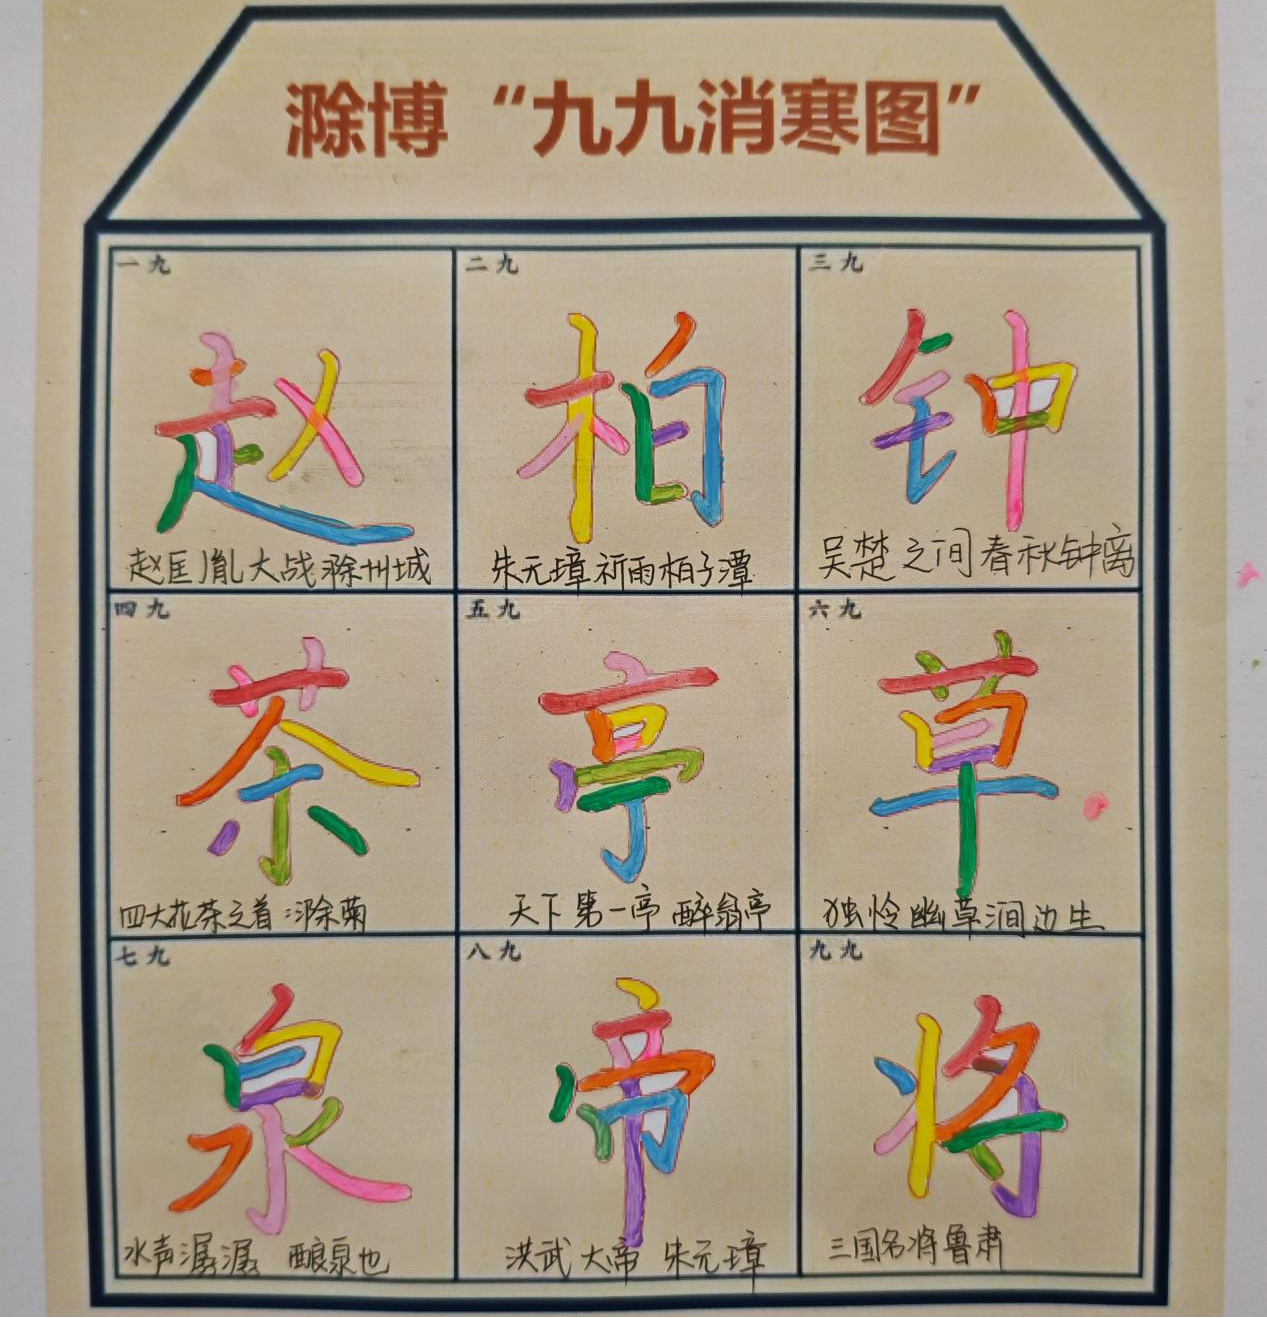 滁博“九九消寒图”
一九
赵
赵匡胤大战滁州城
二九
柏
朱元璋祈雨柏子潭
三九
钟
吴楚之间春秋钟离
四九
茶
四大花茶之首滁菊
五九
亭
天下第一亭 醉翁亭
六九
草
独怜幽草涧边生
七九
泉
水声潺潺 酿泉也
八九
帝
洪武大帝 朱元璋
九九
将
三国名将鲁肃